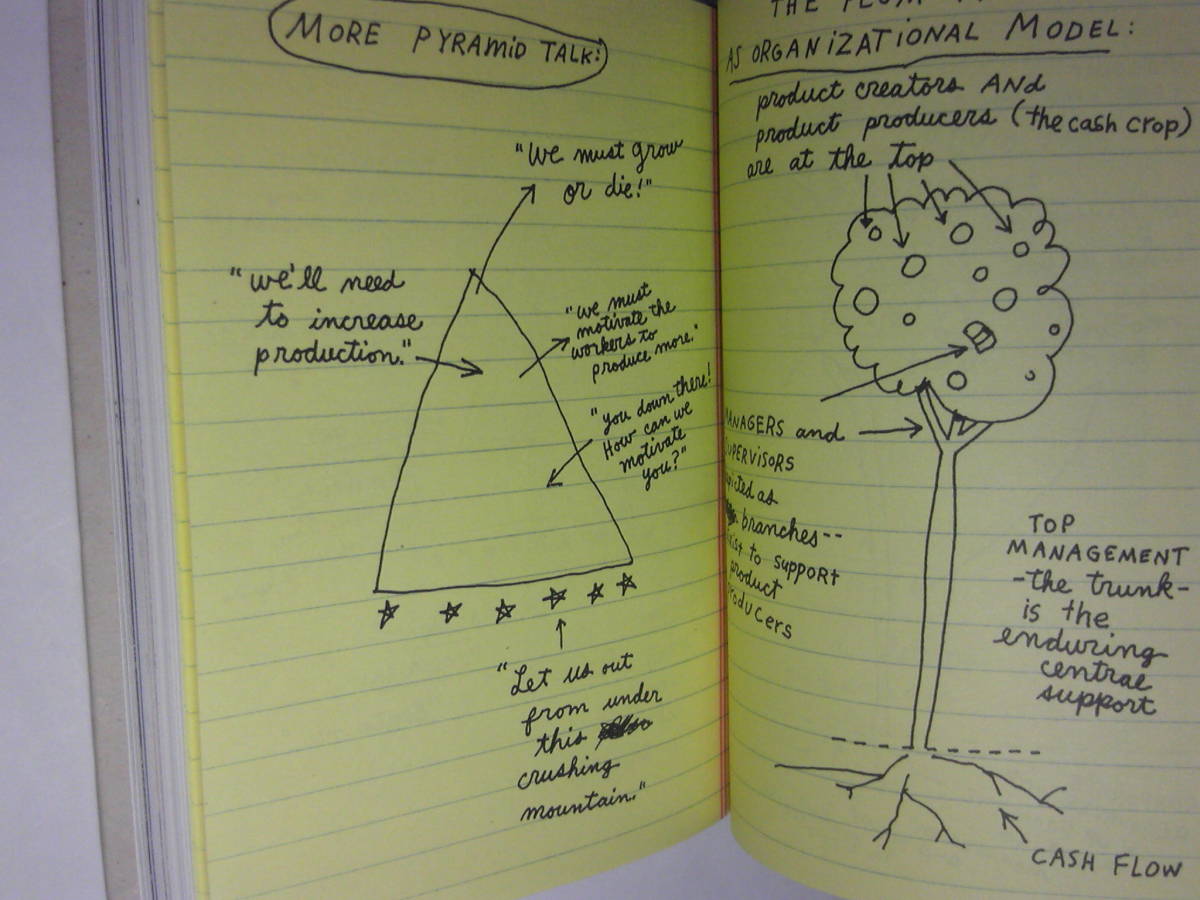 MORE PYRAMID TALK:
"We must grow
or die!"
"we'll need
to increase
production."
"we must
motivate the
workers to
produce more."
"you down there!
How can we
motivate
you?"
"Let us out
from under
this
crushing
mountain."
THE
AS ORGANIZATIONAL MODEL:
product creators AND
product producers (the cash crop)
are at the top
MANAGERS and
SUPERVISORS
as
branches--
to SUPPORT
product
PRODUCERS
TOP
MANAGEMENT
-the trunk-
is the
enduring
central
support
CASH FLOW